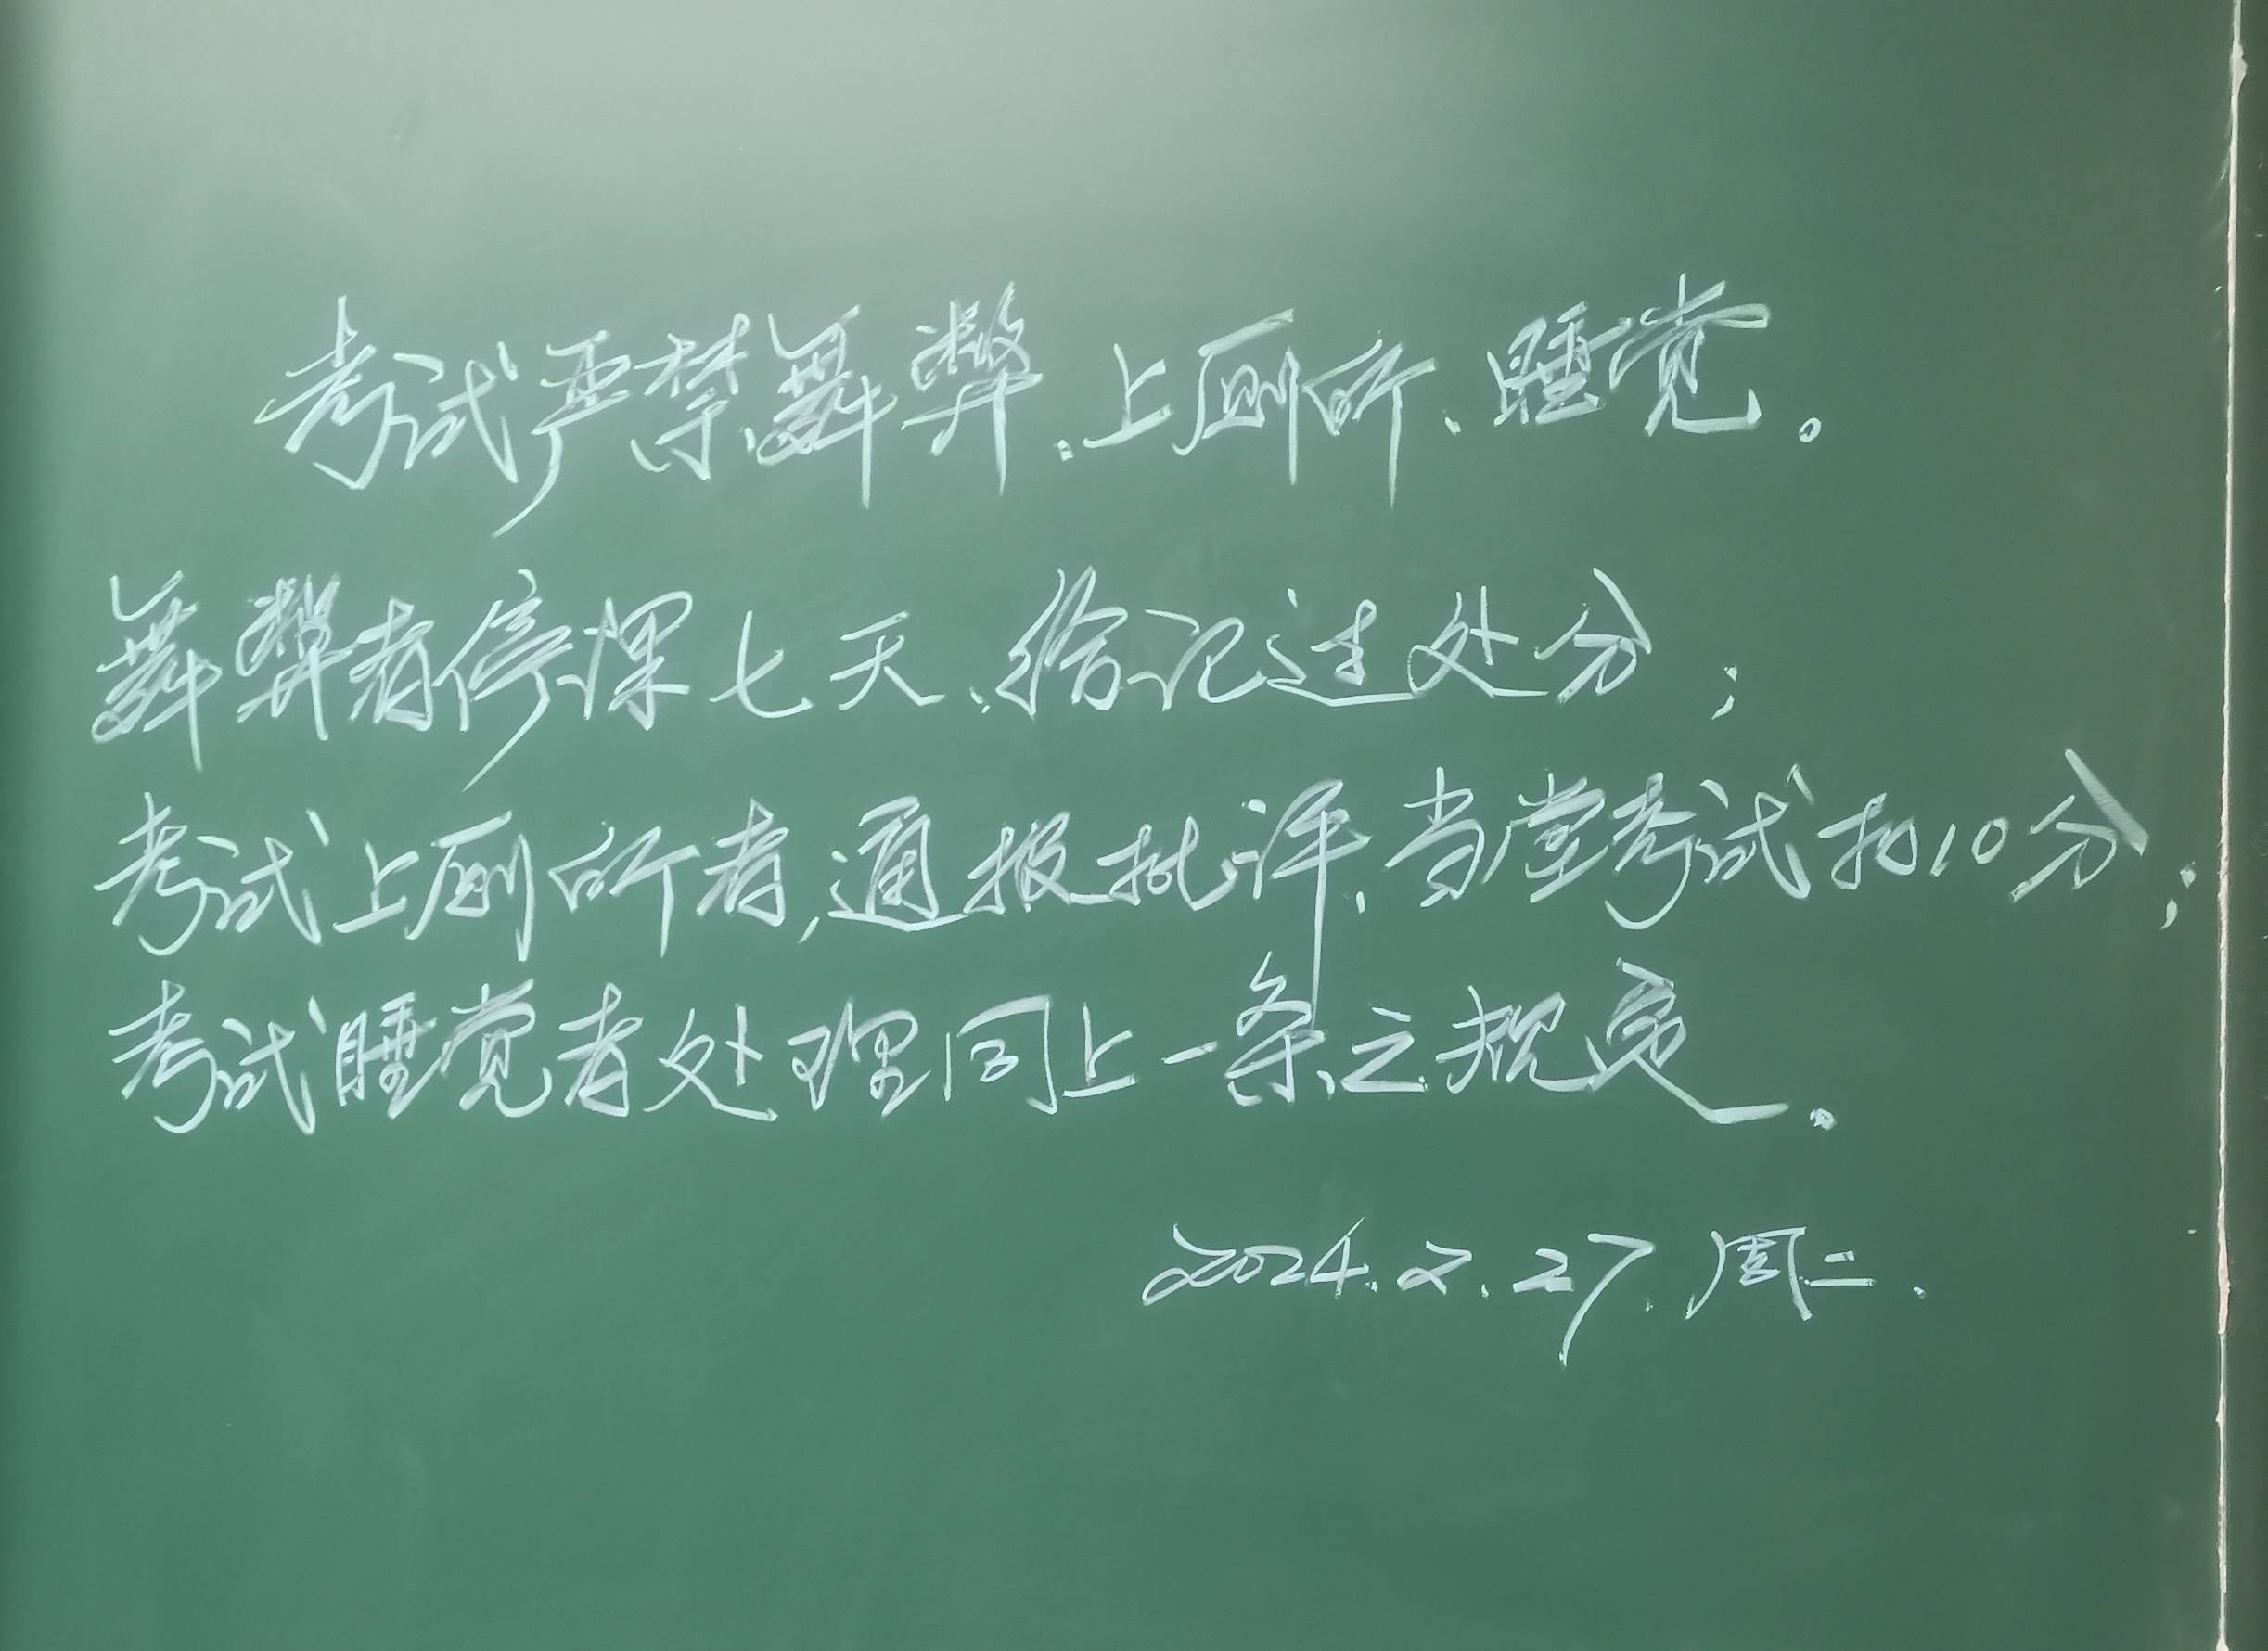 考试严禁舞弊、上厕所、睡觉。
舞弊者停课七天、给记过处分；
考试上厕所者,通报批评、当堂考试扣10分；
考试睡觉者处理同上一条之规定。
2024.2.27.周二.